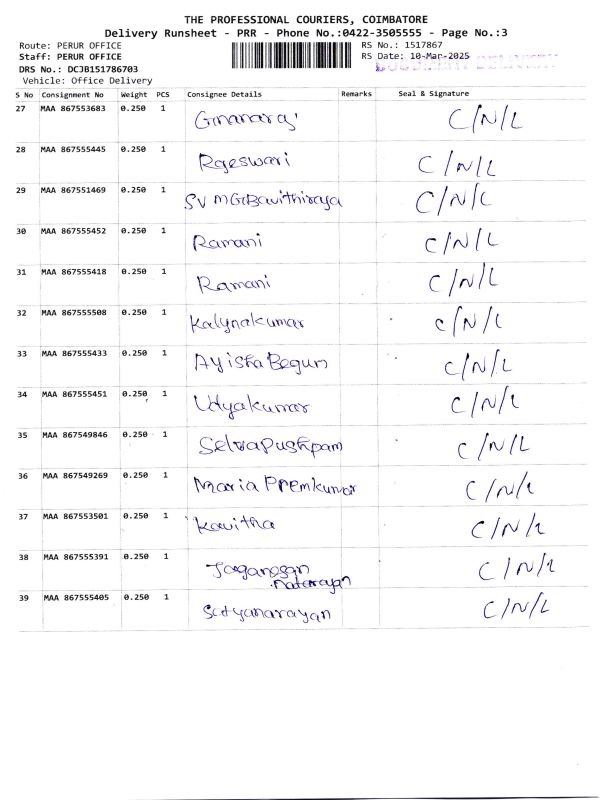 THE PROFESSIONAL COURIERS, COIMBATORE
Delivery Runsheet - PRR - Phone No.:0422-3505555 - Page No.:3
Route: PERUR OFFICE RS No.: 1517867
Staff: PERUR OFFICE RS Date: 10-Mar-2025
DRS No.: DCJB151786703 DOCUMENT DELIVERY
Vehicle: Office Delivery
S No Consignment No Weight PCS Consignee Details Remarks Seal & Signature
27 MAA 867553683 0.250 1 Gnanaraj C/N/L
28 MAA 867555445 0.250 1 Rajeswari C/N/L
29 MAA 867551469 0.250 1 SV MGBavithiraya C/N/L
30 MAA 867555452 0.250 1 Ramani C/N/L
31 MAA 867555418 0.250 1 Ramani C/N/L
32 MAA 867555508 0.250 1 Kalynakumar C/N/L
33 MAA 867555433 0.250 1 Ayisha Begun C/N/L
34 MAA 867555451 0.250 1 Udyakumar C/N/L
35 MAA 867549846 0.250 1 Selvapushpam C/N/L
36 MAA 867549269 0.250 1 Maria Premkumar C/N/L
37 MAA 867553501 0.250 1 Kavitha C/N/L
38 MAA 867555391 0.250 1 Jaganosan C/N/L
Natarayan
39 MAA 867555405 0.250 1 Satyanarayan C/N/L